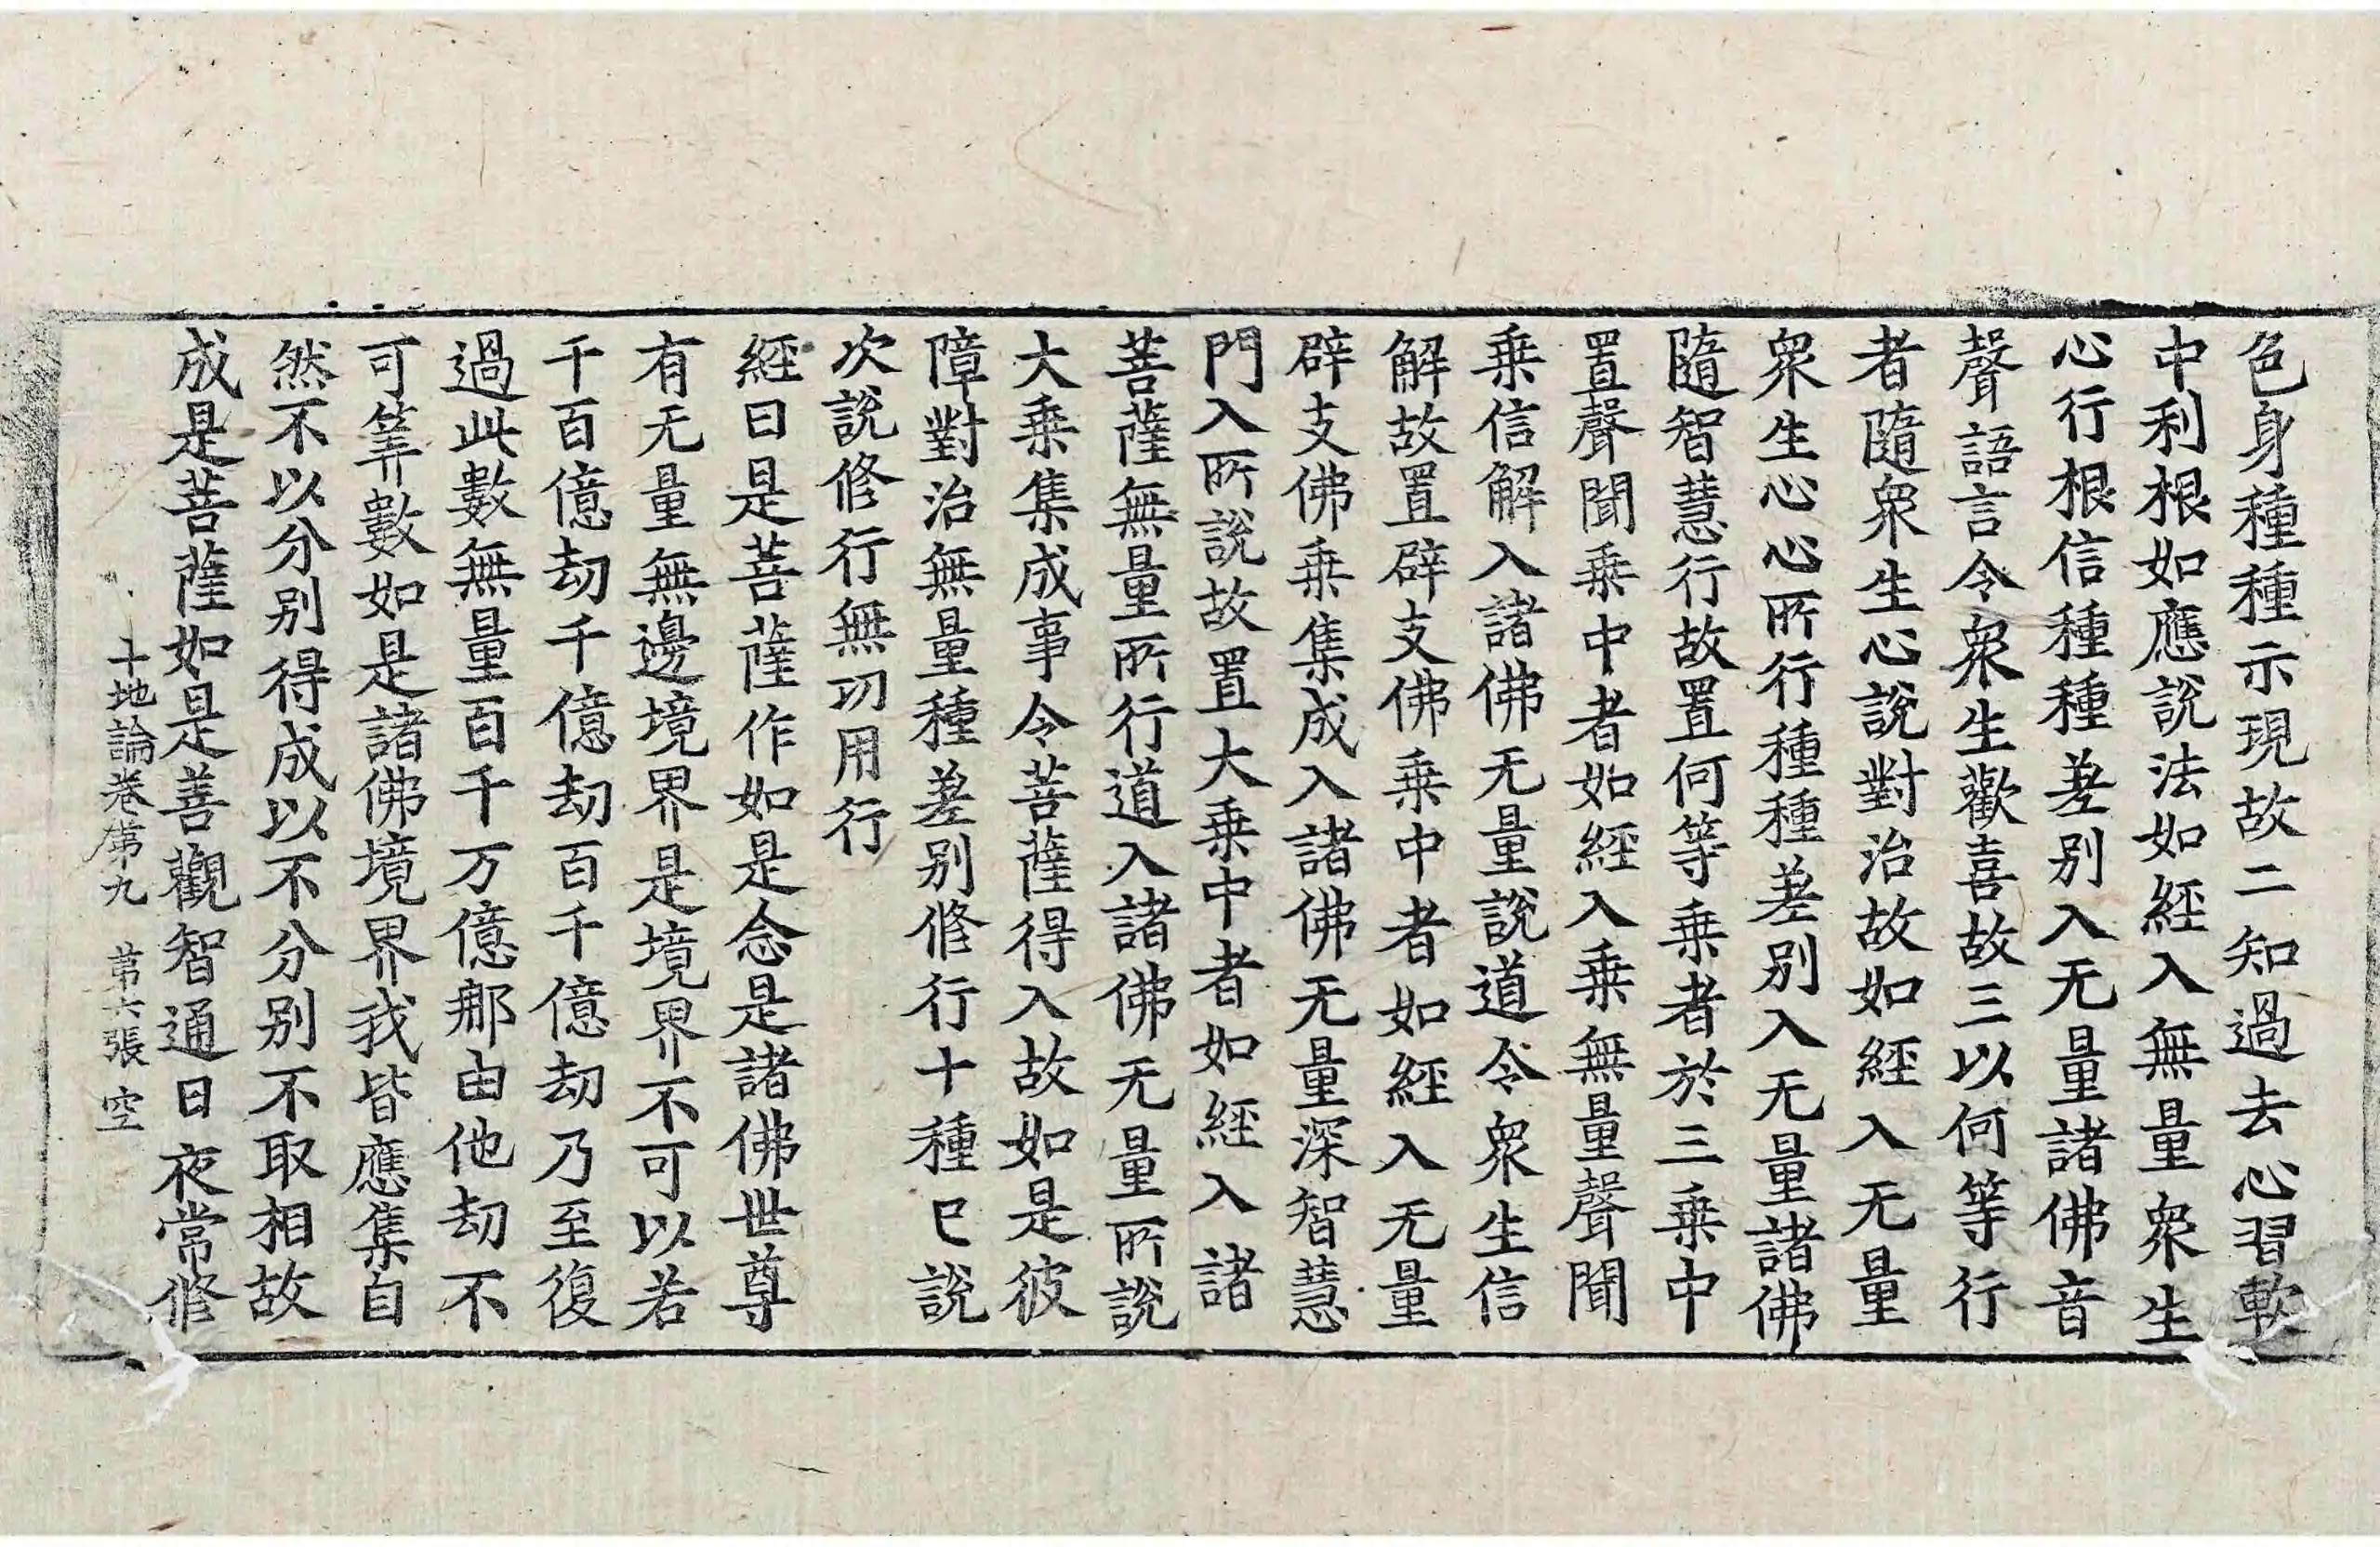 色身種種示現故二知過去心習軟
中利根如應說法如經入無量衆生
心行根信種種差别入无量諸佛音
聲語言令衆生歡喜故三以何等行
者隨衆生心說對治故如經入无量
衆生心心所行種種差别入无量諸佛
隨智慧行故置何等乗者於三乗中
置聲聞乗中者如經入乗無量聲聞
乗信解入諸佛无量說道令衆生信
解故置辟支佛乗中者如經入无量
辟支佛乗集成入諸佛无量深智慧
門入所說故置大乗中者如經入諸
菩薩無量所行道入諸佛无量所說
大乗集成事令菩薩得入故如是彼
障對治無量種差别修行十種已說
次說修行無功用行
經曰是菩薩作如是念是諸佛世尊
有无量無邊境界是境界不可以若
千百億劫千億劫百千億劫乃至復
過此數無量百千万億那由他劫不
可筭數如是諸佛境界我皆應集自
然不以分别得成以不分别不取相故
成是菩薩如是善觀智通日夜常修
十地論卷第九 第六張 空